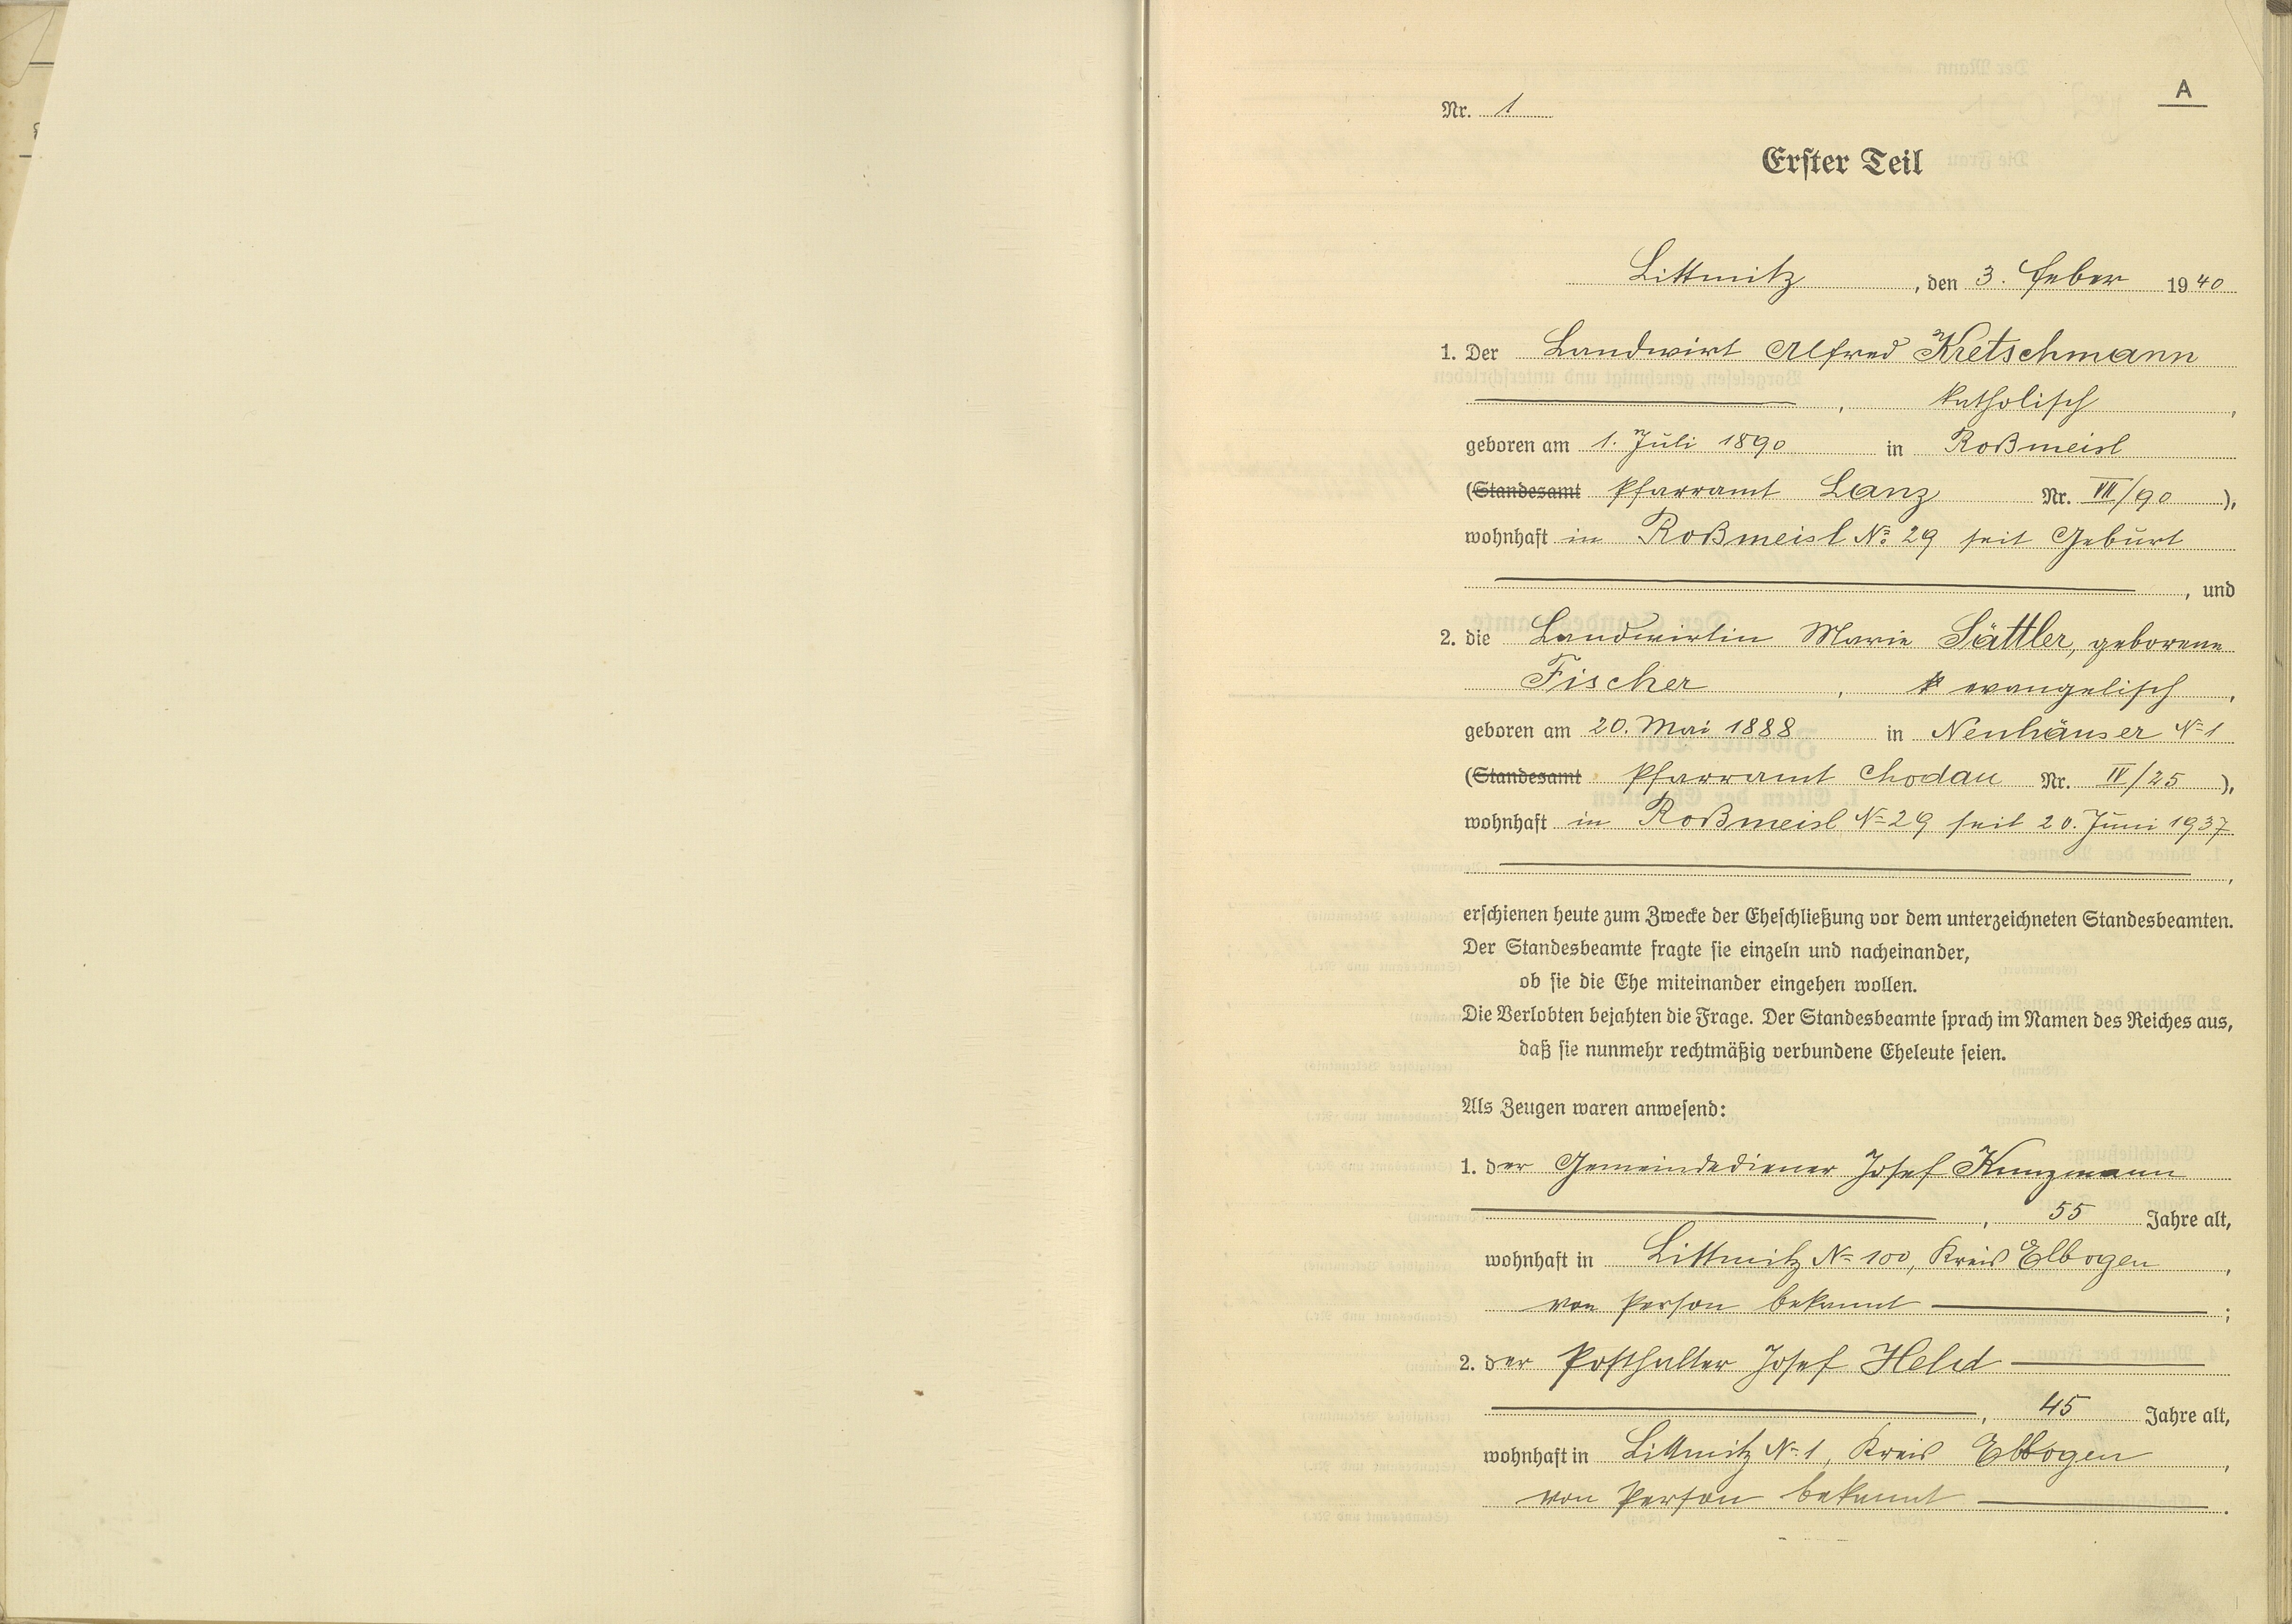 A
Nr. 1
Erster Teil
Littmitz, den 3. Feber 1940
1. Der Landwirt Alfred Kretschmann
, katholisch,
geboren am 1. Juli 1890 in Roßmeisl
(Standesamt Pfarramt Lanz Nr. VII/90),
wohnhaft in Roßmeisl No. 29 seit Geburt
, und
2. die Landwirtin Marie Sättler, geborene
Fischer, evangelisch,
geboren am 20. Mai 1888 in Neuhäuser No 1
(Standesamt Pfarramt Chodau Nr. IV/25),
wohnhaft in Roßmeisl No 29 seit 20. Juni 1937
,
erschienen heute zum Zwecke der Eheschließung vor dem unterzeichneten Standesbeamten.
Der Standesbeamte fragte sie einzeln und nacheinander,
ob sie die Ehe miteinander eingehen wollen.
Die Verlobten bejahten die Frage. Der Standesbeamte sprach im Namen des Reiches aus,
daß sie nunmehr rechtmäßig verbundene Eheleute seien.
Als Zeugen waren anwesend:
1. der Gemeindediener Josef Kunzmann
, 55 Jahre alt,
wohnhaft in Littmitz No 100, Kreis Elbogen,
von Person bekannt;
2. der Posthalter Josef Held
, 45 Jahre alt,
wohnhaft in Littmitz No 1, Kreis Elbogen,
von Person bekannt.